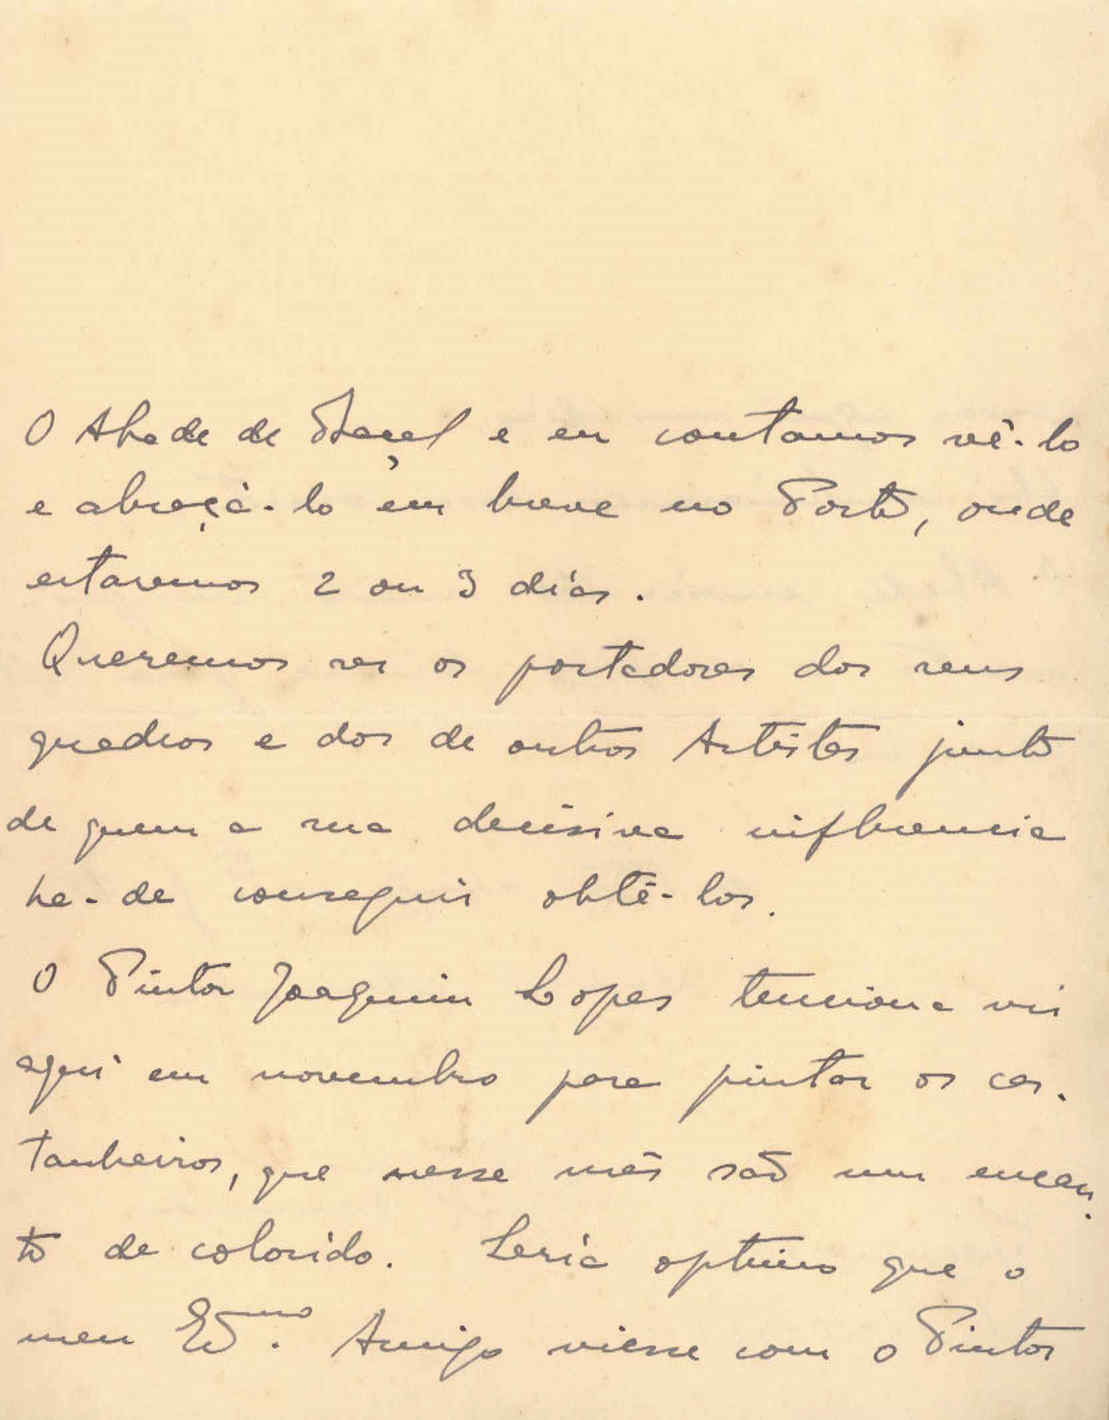 O Abade de Baçal e eu contamos vê-lo
e abraçá-lo em breve no Porto, onde
estaremos 2 ou 3 dias.
Queremos ser os portadores dos seus
quadros e dos de outros Artistas junto
de quem a sua decisiva influencia
ha-de conseguir obtê-los.
O Pintor Joaquim Lopes tenciona vir
aqui em novembro para pintar os cas-
tanheiros, que nesse mês são um encan-
to de colorido. Seria optimo que o
meu Exmo. Amigo viesse com o Pintor